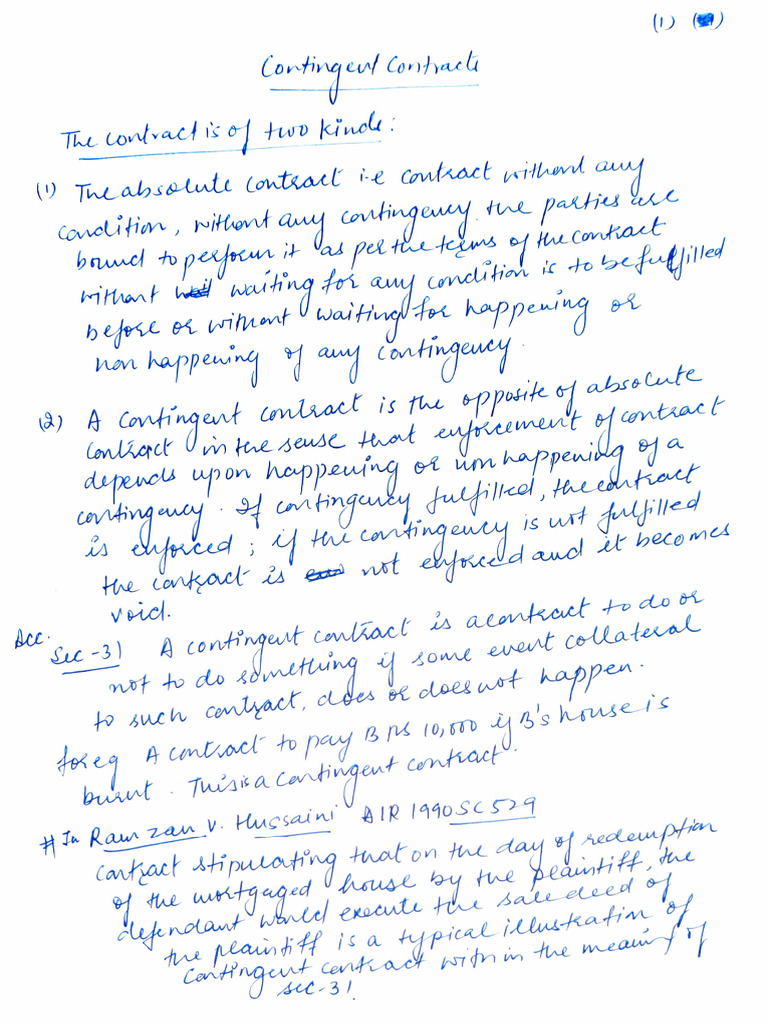 (1)
Contingent Contracts
The contract is of two kinds:
(1) The absolute contract i.e contract without any
condition, without any contingency the parties are
bound to perform it as per the terms of the contract
without waiting for any condition is to be fulfilled
before or without waiting for happening or
non happening of any contingency.
(2) A contingent contract is the opposite of absolute
contract in the sense that enforcement of contract
depends upon happening or non happening of a
contingency. If contingency fulfilled, the contract
is enforced; if the contingency is not fulfilled
the contract is not enforced and it becomes
void.
Acc. Sec-31 A contingent contract is a contract to do or
not to do something if some event collateral
to such contract, does or does not happen.
for eg A contract to pay B Rs 10,000 if B's house is
burnt. This is a contingent contract.
# In Ramzan v. Hussaini AIR 1990 SC 529
contract stipulating that on the day of redemption
of the mortgaged house by the plaintiff, the
defendant would execute the sale deed of
the plaintiff is a typical illustration of
contingent contract with in the meaning of
sec-31